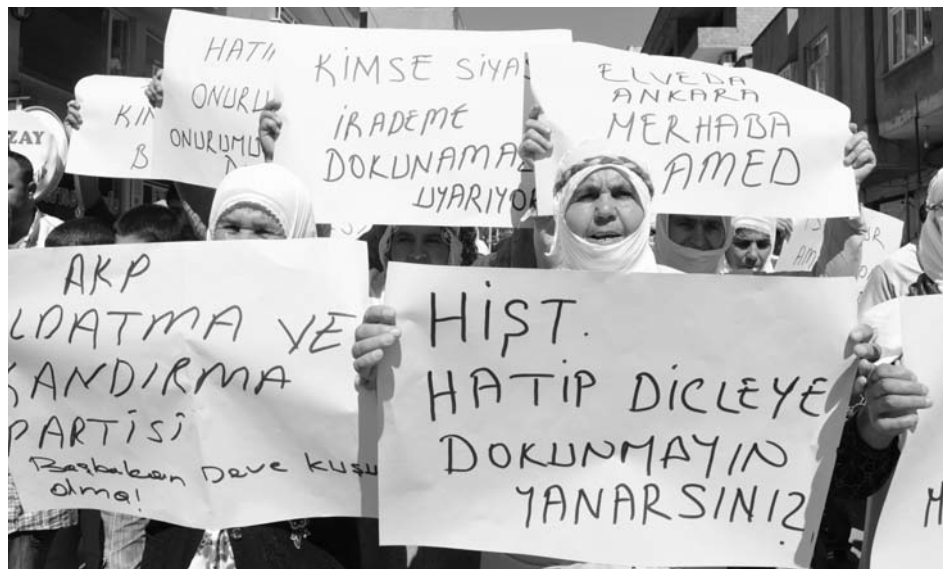 ZAY
KIM
B
HATİ
ONURU
ONURUMU
KİMSE SİYA
İRADEME
DOKUNAMA
UYARIYOR
ELVEDA
ANKARA
MERHABA
AMED
AKP
LDATMA VE
KANDIRMA
PARTİSİ
Başbakan Deve kuşu
olma!
HİŞT.
HATİP DİCLEYE
DOKUNMAYIN
YANARSINIZ